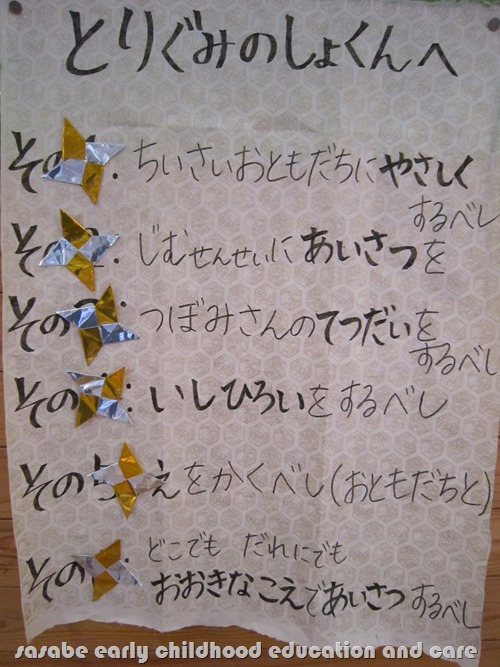 とりぐみのしょくんへ
その: ちいさいおともだちにやさしく
するべし
その: じむせんせいにあいさつを
その: つぼみさんのてつだいを
するべし
その: いしひろいをするべし
その5 えをかくべし(おともだちと)
どこでも だれにでも
その: おおきなこえであいさつするべし
sasabe early childhood education and care